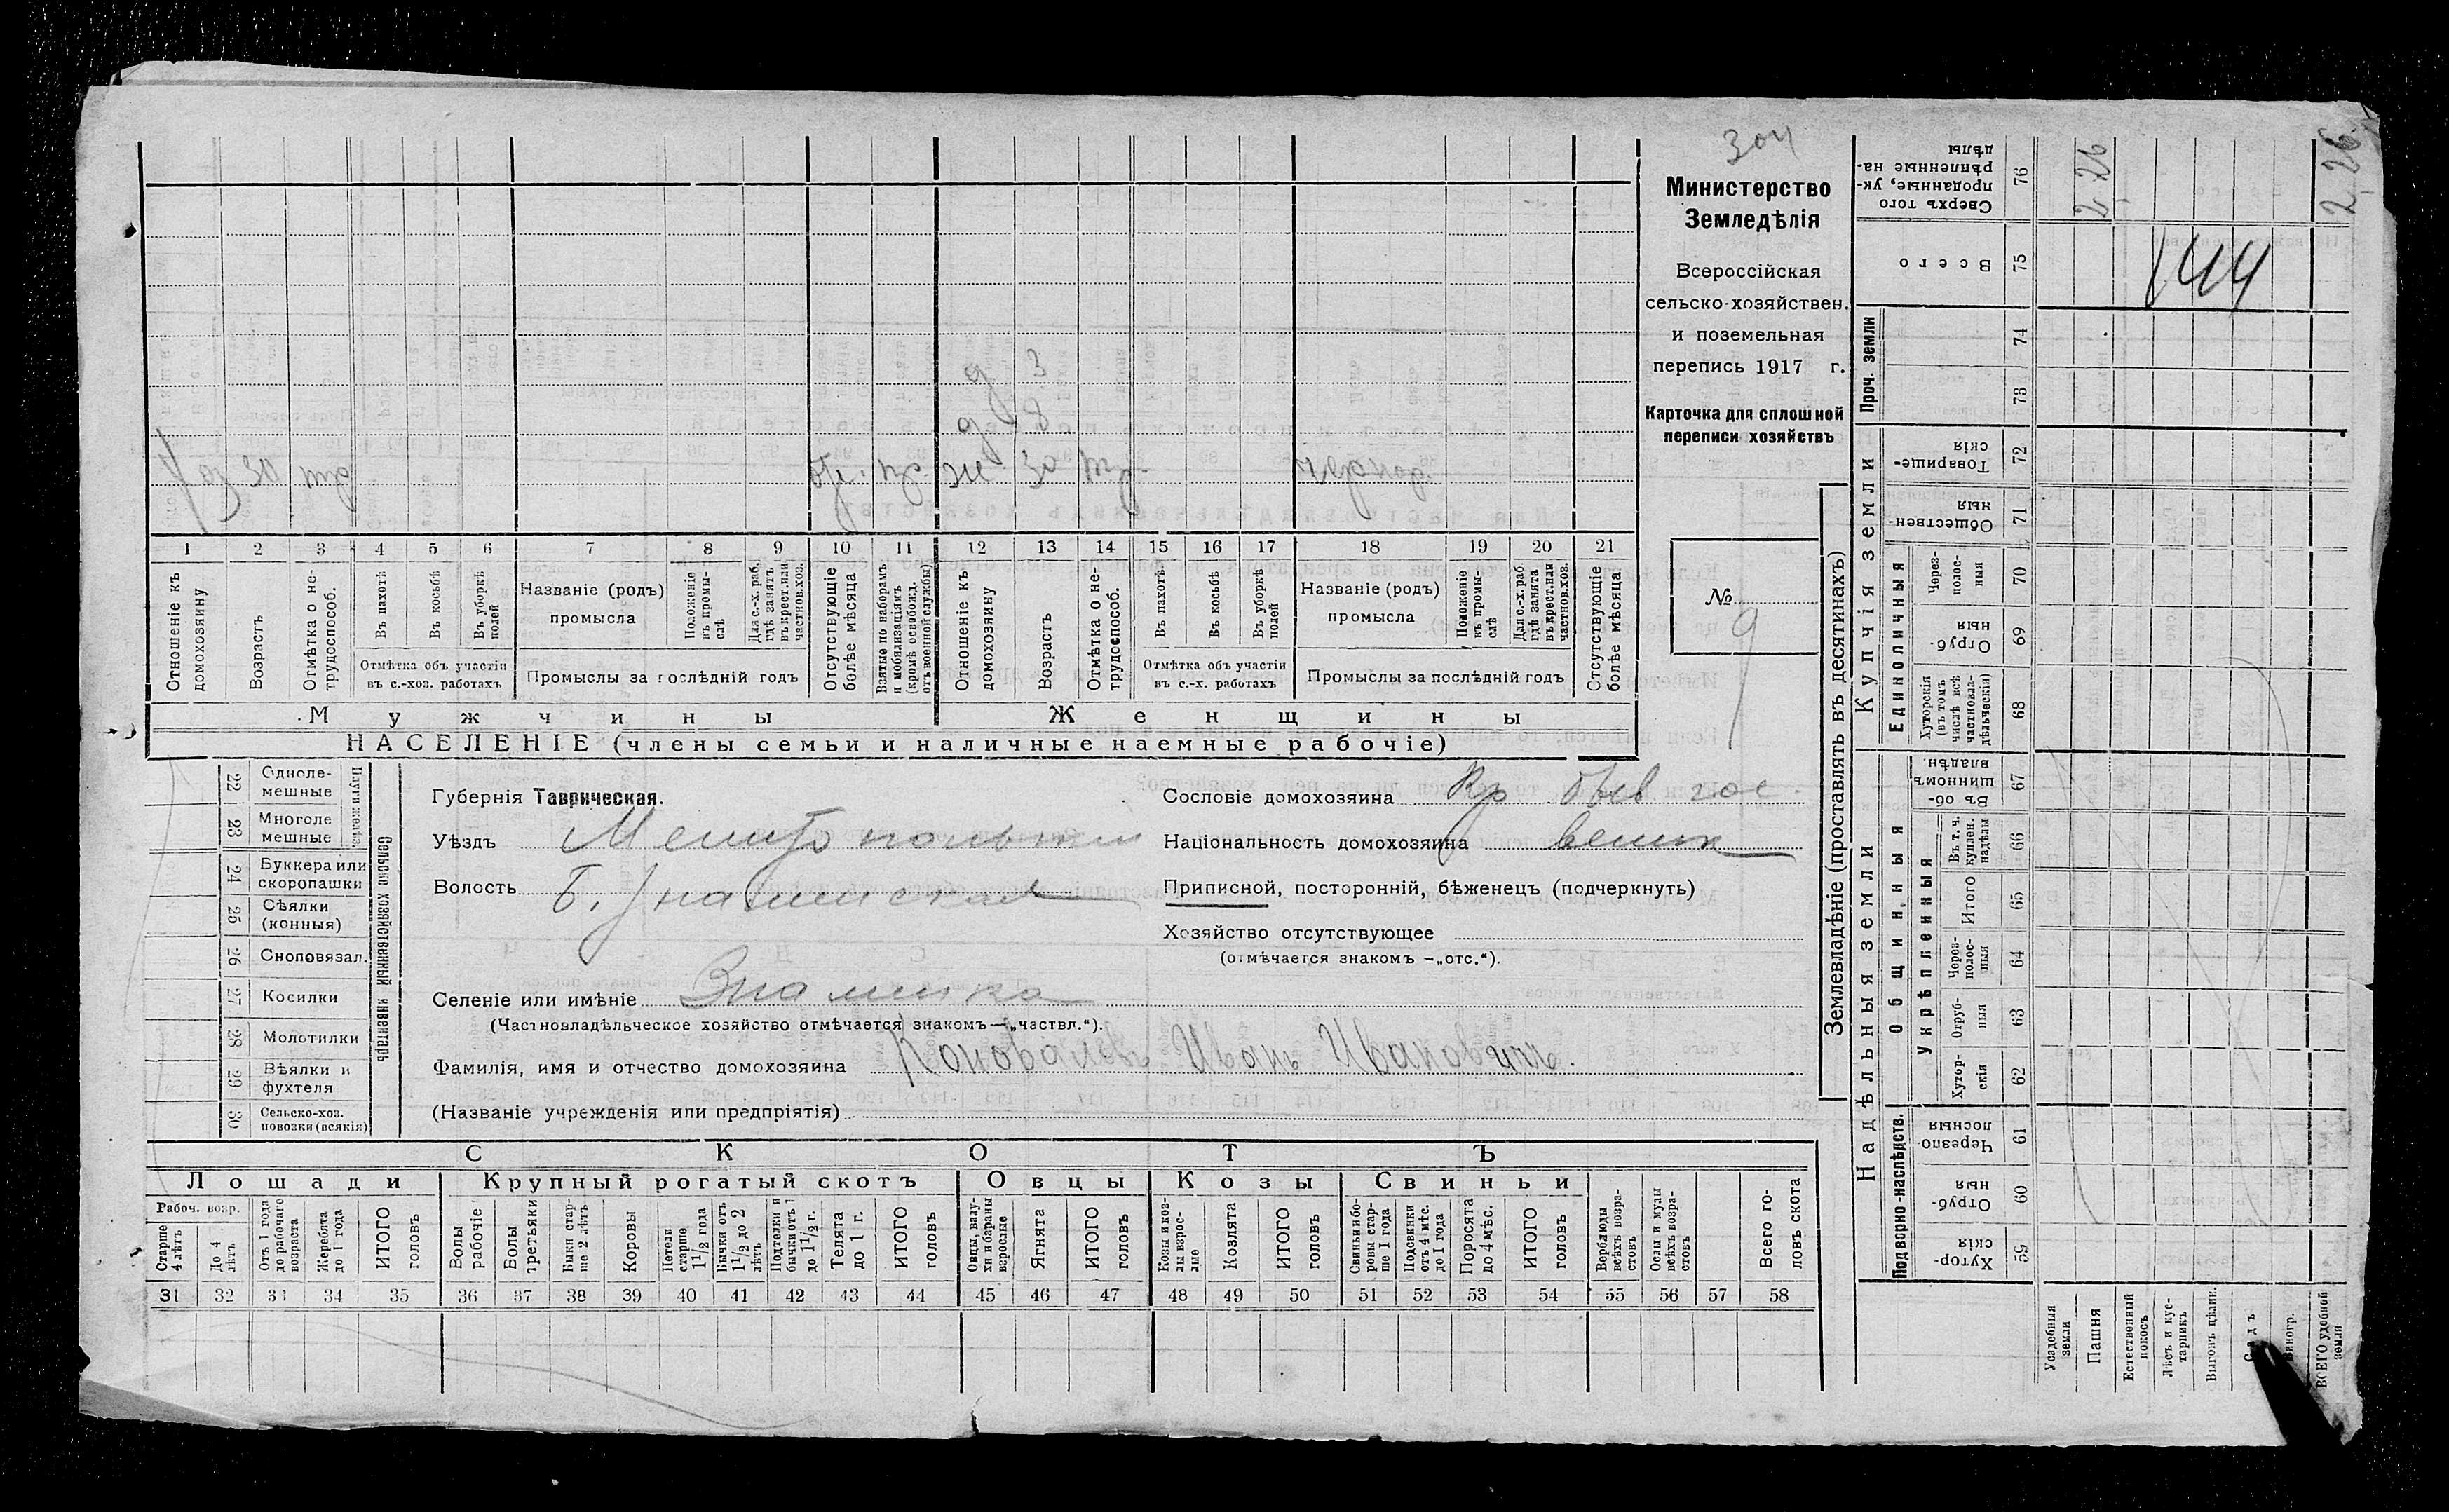 304
Министерство
Земледѣлія
Всероссійская
сельско-хозяйствен.
и поземельная
перепись 1917 г.
Карточка для сплошной
переписи хозяйствъ
№
9
д 3
д 8
30
ж 30
1 2 3 4 5 6 7 8 9 10 11 12 13 14 15 16 17 18 19 20 21
Отношеніе къ домохозяину
Возрастъ
Отмѣтка о не-трудоспособ.
Въ пахотѣ
Въ косьбѣ
Въ уборкѣ полей
Отмѣтка объ участіи
въ с.-хоз. работахъ
Названіе (родъ)
промысла
Положеніе въ промы-слѣ
Для с.-х. раб. гдѣ занятъ въ крест. или частнов. хоз.
Промыслы за послѣдній годъ
Отсутствующіе болѣе мѣсяца
Взятые по наборамъ и мобилизаціямъ (кромѣ освобожд. отъ военной службы)
Отношеніе къ домохозяину
Возрастъ
Отмѣтка о не-трудоспособ.
Въ пахотѣ
Въ косьбѣ
Въ уборкѣ полей
Отмѣтка объ участіи
въ с.-х. работахъ
Названіе (родъ)
промысла
Положеніе въ промы-слѣ
Для с.-х. раб. гдѣ занята въ крест. или частнов. хоз.
Промыслы за послѣдній годъ
Отсутствующіе болѣе мѣсяца
Мужчины
Женщины
НАСЕЛЕНІЕ (члены семьи и наличные наемные рабочіе)
Сельско хозяйственный инвентарь
Плуги желѣз.
22 Одноле-мешные
23 Многоле мешные
24 Буккера или скоропашки
25 Сѣялки (конныя)
26 Сноповязал.
27 Косилки
28 Молотилки
29 Вѣялки и фухтеля
30 Сельско-хоз. повозки (всякія)
Губернія Таврическая.
Уѣздъ Мелитопольскій
Волость Б. Знаменская
Селеніе или имѣніе Знаменка
(Частновладѣльческое хозяйство отмѣчается знакомъ—„частвл.“).
Фамилія, имя и отчество домохозяина Коновалов Иванъ Ивановичъ.
(Названіе учрежденія или предпріятія)
Сословіе домохозяина Кр быв гос.
Національность домохозяина велик
Приписной, посторонній, бѣженецъ (подчеркнуть)
Хозяйство отсутствующее
(отмѣчается знакомъ —„отс.“).
СКОТЪ
Лошади Крупный рогатый скотъ Овцы Козы Свиньи
Рабоч. возр.
Старше 4 лѣтъ
До 4 лѣтъ
Отъ 1 года до рабочаго возраста
Жеребята до 1 года
ИТОГО головъ
Волы рабочіе
Волы третьяки
Быки стар-ше 2 лѣтъ
Коровы
Нетели старше 1 1/2 года
Бычки отъ 1 1/2 до 2 лѣтъ
Подтелки и бычки отъ 1 до 1 1/2 г.
Телята до 1 г.
ИТОГО головъ
Овцы, валу-хи и бараны взрослые
Ягнята
ИТОГО головъ
Козы и коз-лы взрос-лые
Козлята
ИТОГО головъ
Свиньи и бо-ровы стар-ше 1 года
Подсвинки отъ 4 мѣс. до 1 года
Поросята до 4 мѣс.
ИТОГО головъ
Верблюды всѣхъ возра-стовъ
Ослы и мулы всѣхъ возра-стовъ
Всего го-ловъ скота
31 32 33 34 35 36 37 38 39 40 41 42 43 44 45 46 47 48 49 50 51 52 53 54 55 56 57 58
Землевладѣніе (проставлять въ десятинахъ)
Надѣльныя земли
Подворно-наслѣдств.
Хутор-скія 59
Отруб-ныя 60
Черезпо-лосныя 61
Общинныя
Укрѣпленныя
Хутор-скія 62
Отруб-ныя 63
Через-полос-ныя 64
Итого 65
Въ т. ч. куплен. надѣлы 66
Въ об-щинномъ владѣн. 67
Купчія земли
Единоличныя
Хуторскія (въ томъ числѣ всѣ частновла-дѣльческія) 68
Отруб-ныя 69
Через-полос-ныя 70
Обществен-ныя 71
Товарище-скія 72
Проч. земли
73
74
Всего 75
Сверхъ того проданные, ук-рѣпленные на-дѣлы 76
2,26
2,26
144
Усадебныя земли
Пашня
Естественный покосъ
Лѣсъ и кус-тарникъ
Выгонъ цѣлин.
Садъ
Виногр.
ВСЕГО удобной земли